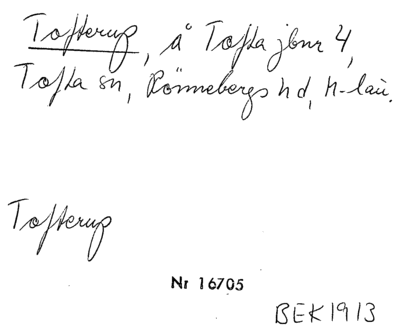 Tofterup, å Tofta jbnr 4,
Tofta sn, Rönnebergs hd, M-län.
Tofterup
Nr 16705
BEK1913